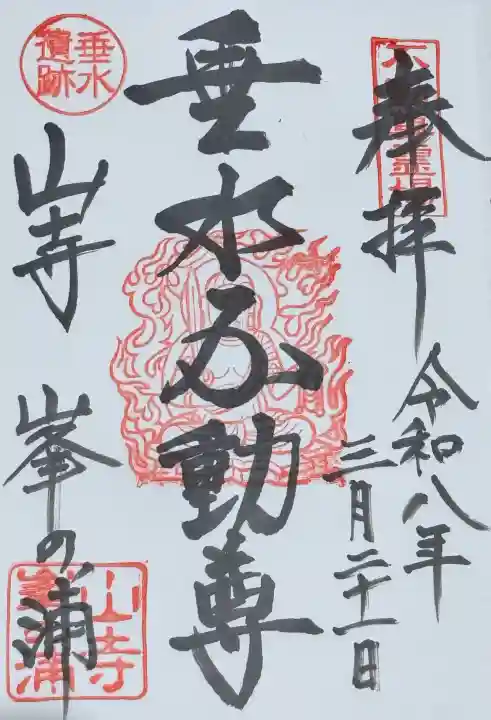 奉拝
令和八年
三月二十一日
垂水不動尊
垂水
遺跡
山寺
峯の浦
山寺
峯浦